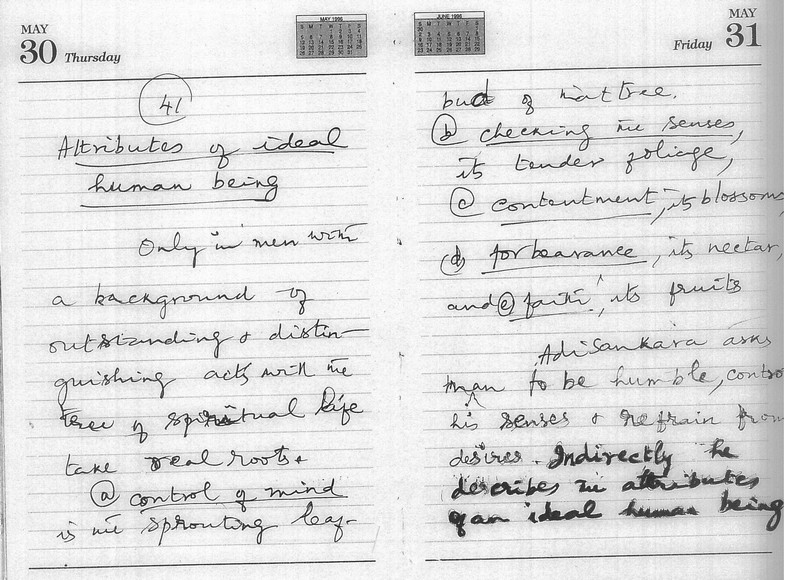 MAY
30 Thursday
MAY 1996
41
Attributes of ideal
human being
Only in men with
a background of
outstanding & distin-
guishing acts will the
tree of spiritual life
take real roots.
(a) control of mind
is the sprouting leaf-
JUNE 1996
MAY
Friday 31
bud of that tree.
(b) checking the senses,
its tender foliage,
(c) contentment, its blossoms,
(d) forbearance, its nectar,
and (e) faith, its fruits
Adi Sankara asks
man to be humble, contro
his senses & refrain from
desires. Indirectly he
describes the attributes
of an ideal human being